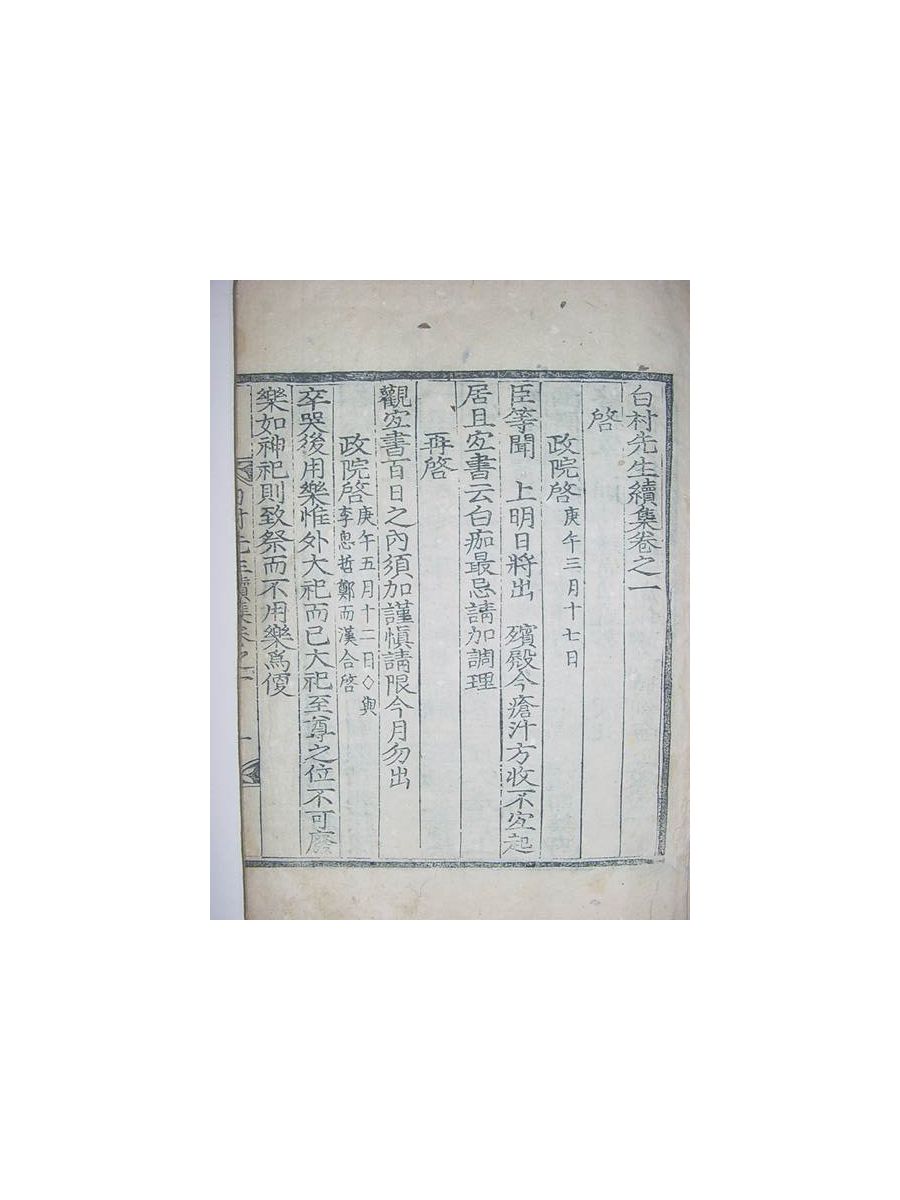 白村先生續集卷之一
啓
政院啓 庚午三月十七日
臣等聞 上明日將出 殯殿今瘡汁方收不宜起
居且宜書云白痂最忌請加調理
再啓
觀宜書百日之內須加謹愼請限今月勿出
政院啓 庚午五月十二日◇與李思哲鄭而漢合啓
卒哭後用樂惟外大祀而已大祀至尊之位不可廢
樂如神祀則致祭而不用樂爲便